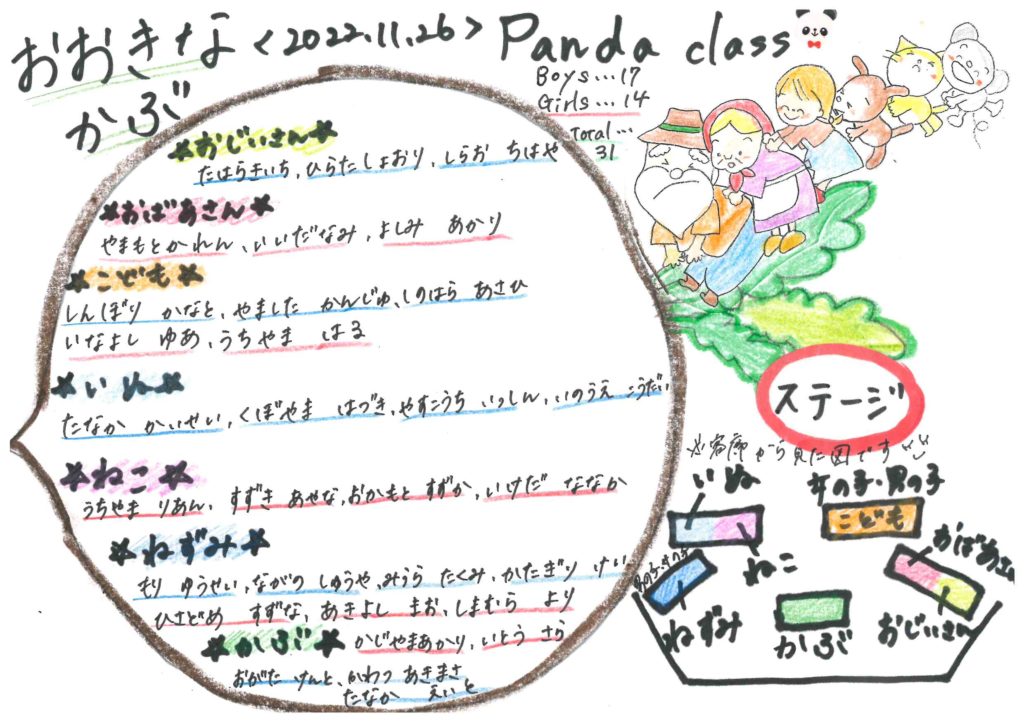 おおきな <2022.11.26> Panda class
かぶ
Boys…17
Girls…14
Total…
31
★おじいさん★
たはらきいち、ひらたしょおり、しらお ちはや
★おばあさん★
やまもとかれん、いいだなみ、よしみ あかり
★こども★
しんぼり かなと、やました かんじゅ、しのはら あさひ
いなよし ゆあ、うちやま はる
★いぬ★
たなか かいせい、くぼやま はづき、やすこうち いっしん、いのうえ こうだい
★ねこ★
うちやま りあん、すずき あやな、おかもと すずか、いけだ ななか
★ねずみ★
もり ゆうせい、ながの しゅうや、みうら たくみ、かたぎり けい
ひさどめ すずな、あきよし まお、しまむら より
★かぶ★ かじやまあかり、いとう さら
おがた けんと、かわつ あきまさ
たなか えいと
ステージ
※客席から見た図です
いぬ
女の子・男の子
こども
ねこ
おばあさん
ねずみ
かぶ
おじいさん